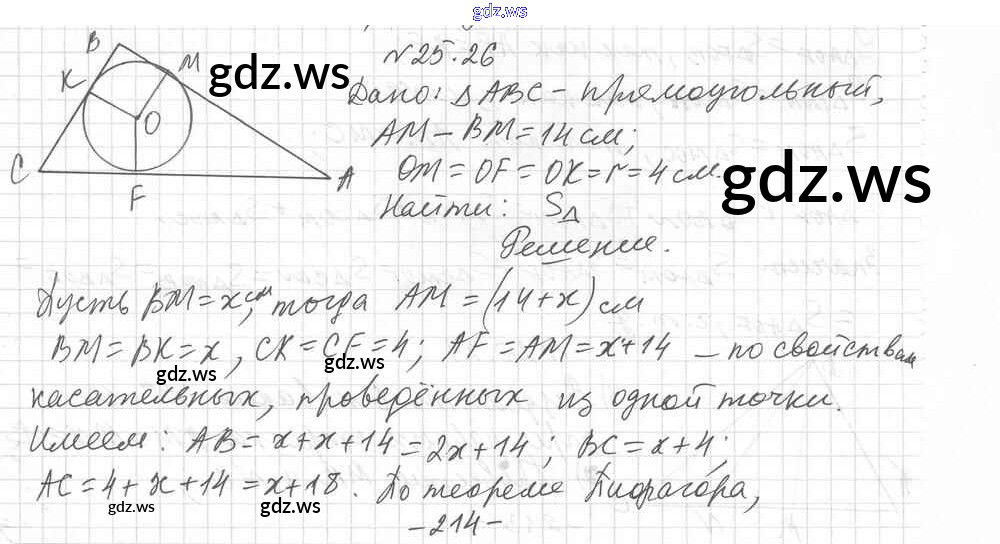 gdz.ws
N 25.26
B
K
M
O
C
F
A
gdz.ws
Дано: ΔABC - прямоугольный,
AM - BM = 14 см;
OM = OF = OK = r = 4 см.
gdz.ws
Найти: SΔ
Решение.
Пусть BM = x см, тогда AM = (14 + x) см
BM = BK = x, CK = CF = 4; AF = AM = x + 14 - по свойствам
gdz.ws
gdz.ws
касательных, проведённых из одной точки.
Имеем: AB = x + x + 14 = 2x + 14; BC = x + 4;
gdz.ws
AC = 4 + x + 14 = x + 18. По теореме Пифагора,
gdz.ws
gdz.ws
- 214 -